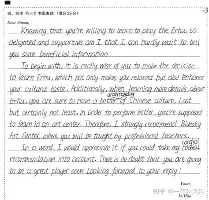 Dear Alison,
Knowing that you're willing to learn to play the Erhu, so
delighted and supportive am I that I can hardly wait to tell
you some beneficial information.
To begin with, it is really wise of you to make the decision
to learn Erhu, which not only makes you relaxed but also enhance
your cultural taste. Additionally, when learning more details about
understanding
Erhu, you are sure to have a better of Chinese culture. Last
but certainly not least, in order to perform better, you're supposed
to learn in an art center. Therefore, I strongly recommend
Art Center, where you will be taught by professional teachers.
In a word, I would appreciate it if you could take my
recommendation into account. There is no doubt that you are going
to be a great player soon. Looking forward to your reply!
Yours,
Li Hua